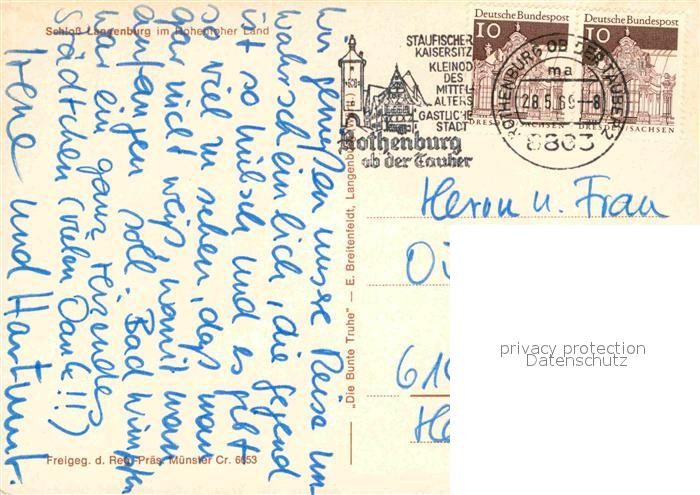 Schloß Langenburg im Hohenloher Land
Wir genießen unsere Reise un-
wahrscheinlich, die Gegend
ist so hübsch und es gibt
so viel zu sehen, daß man
gar nicht weiß womit man
anfangen soll. Bad Wimpfen
war ein ganz reizendes
Städtchen (vielen Dank!!)
Irene und Hartmut.
Freigeg. d. Reg.-Präs. Münster Cr. 6653
„Die Bunte Truhe" — E. Breitenfeldt, Langenburg
STAUFISCHER
KAISERSITZ
KLEINOD
DES
MITTEL-
ALTERS
GASTLICHE
STADT
Rothenburg
ob der Tauber
Deutsche Bundespost
10
DRESDEN/SACHSEN
Deutsche Bundespost
10
DRESDEN/SACHSEN
ROTHENBURG OB DER TAUBER 2
ma
28.5.69-8
8803
Herrn u. Frau
privacy protection
Datenschutz